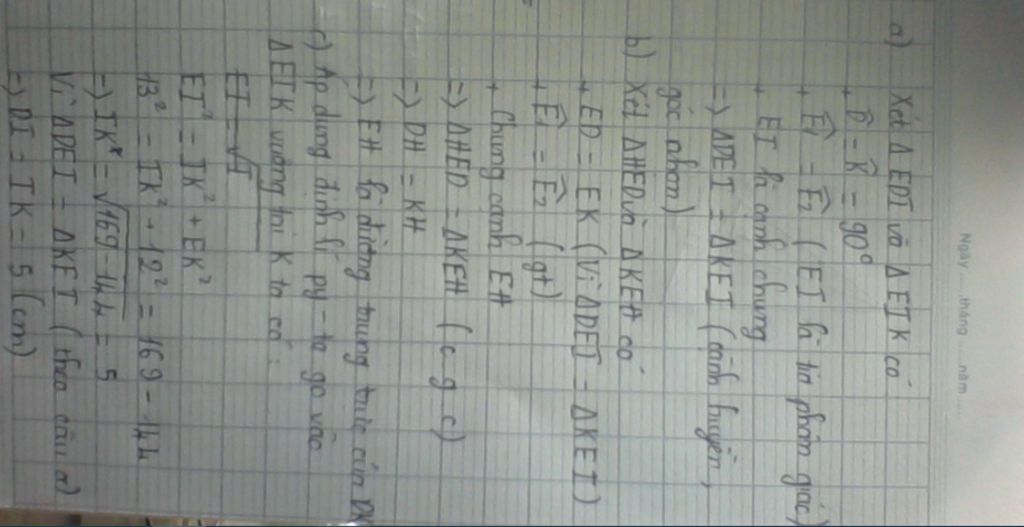 Ngày ..... tháng ..... năm .....
a) Xét ΔEDI và ΔEIK có
+ D̂ = K̂ = 90°
+ Ê1 = Ê2 (EI là tia phân giác)
+ EI là cạnh chung
=) ΔDEI = ΔKEI (cạnh huyền,
góc nhọn)
b) Xét ΔHED và ΔKEH có
+ ED = EK (Vì ΔDEI = ΔKEI)
+ Ê1 = Ê2 (gt)
+ Chung cạnh EH
=) ΔHED = ΔKEH (c g c)
=) DH = KH
=) EH là đường trung trực của DK
c) Áp dụng định lí py-ta go vào
ΔEIK vuông tại K ta có :
EI² = IK² + EK²
13² = IK² + 12² = 169 - 144
=) IK = √169-144 = 5
Vì ΔDEI = ΔKEI (theo câu a)
=) DI = IK = 5 (cm)